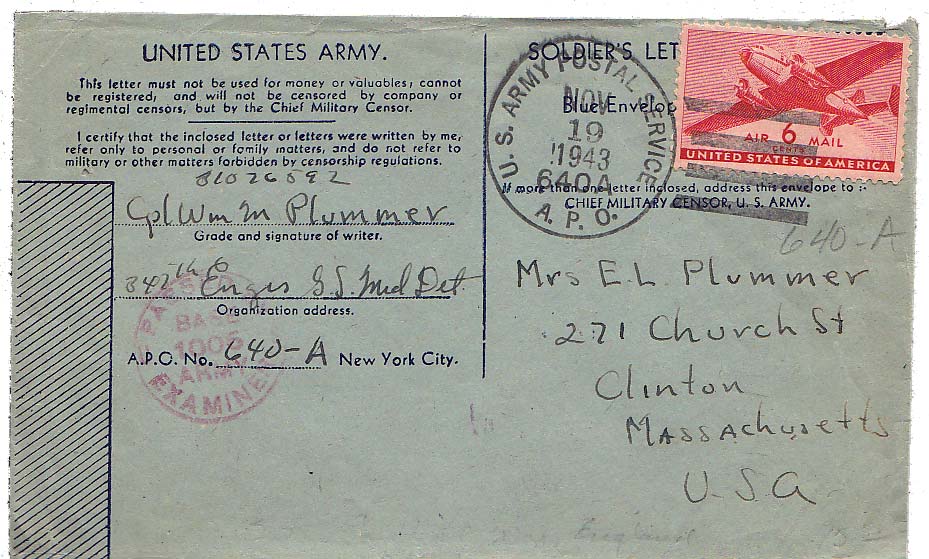 UNITED STATES ARMY.
This letter must not be used for money or valuables; cannot
be registered; and will not be censored by company or
regimental censors, but by the Chief Military Censor.
I certify that the inclosed letter or letters were written by me,
refer only to personal or family matters, and do not refer to
military or other matters forbidden by censorship regulations.
31026592
Cpl Wm M Plummer
Grade and signature of writer.
342th Engrs G.S. Med Det
Organization address.
A.P.O. No. 640-A New York City.
PASSED
BASE
1005
ARMY
EXAMINER
SOLDIER'S LET
Blue Envelop
U. S. ARMY POSTAL SERVICE
NOV
19
1943
640A
A. P. O.
AIR 6 MAIL
CENTS
UNITED STATES OF AMERICA
If more than one letter inclosed, address this envelope to :-
CHIEF MILITARY CENSOR, U. S. ARMY.
640-A
Mrs E. L. Plummer
271 Church St
Clinton
Massachusetts
U.S.A
England